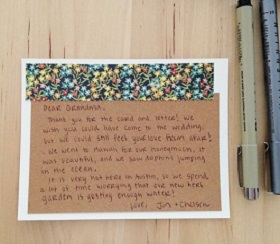 DEAR GRANDMA,
THANK YOU FOR THE CARD AND LETTER! WE
WISH YOU COULD HAVE COME TO THE WEDDING,
BUT WE COULD STILL FEEL YOUR LOVE FROM AFAR!
WE WENT TO HAWAII FOR OUR HONEYMOON, IT
WAS BEAUTIFUL, AND WE SAW DOLPHINS JUMPING
IN THE OCEAN.
IT IS VERY HOT HERE IN AUSTIN, SO WE SPEND
A LOT OF TIME WORRYING THAT OUR NEW HERB
GARDEN IS GETTING ENOUGH WATER!
LOVE, + CHELSEA